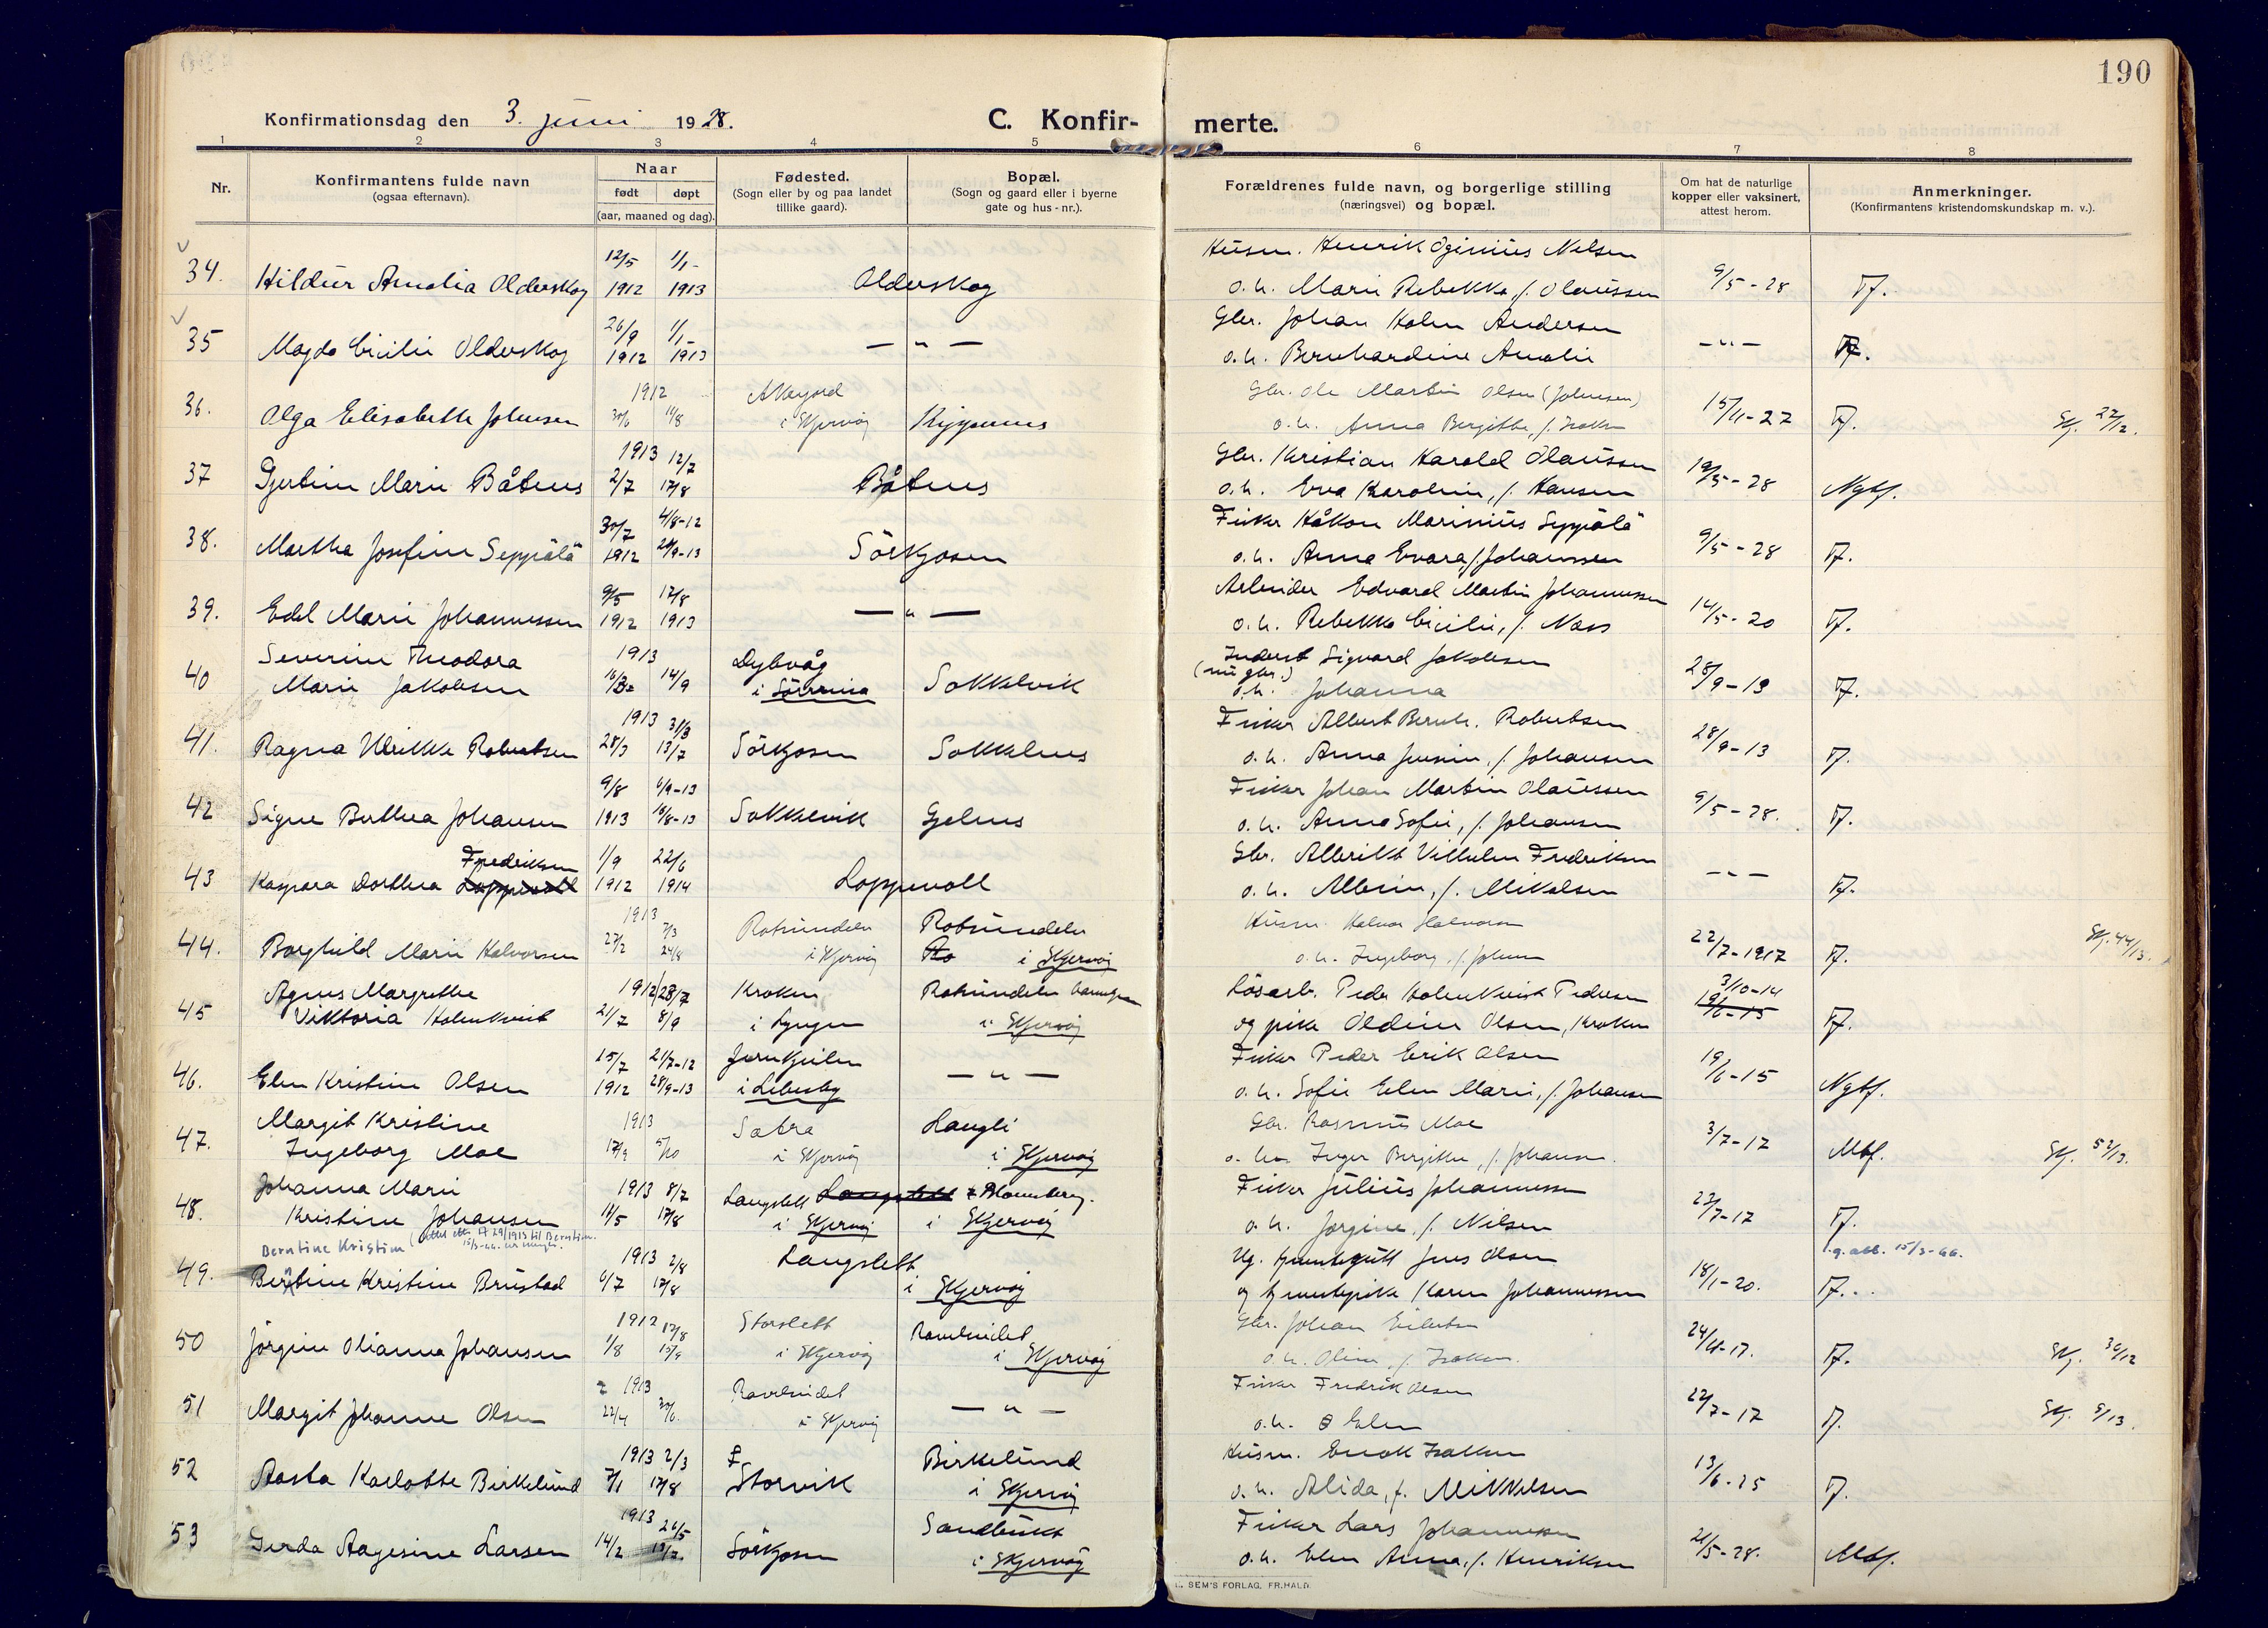 190
Konfirmationsdag den 3. juni 1928.
C. Konfir-
merte.
1 2 3 4 5 6 7 8
Nr.
Konfirmantens fulde navn
(ogsaa efternavn).
Naar
født døpt
(aar, maaned og dag).
Fødested.
(Sogn eller by og paa landet
tillike gaard).
Bopæl.
(Sogn og gaard eller i byerne
gate og hus-nr.).
Forældrenes fulde navn, og borgerlige stilling
(næringsvei) og bopæl.
Om hat de naturlige
kopper eller vaksinert,
attest herom.
Anmerkninger.
(Konfirmantens kristendomskundskap m. v.).
Husm. Henrik Oginius Nilsen
34. Hildur Amalia Olderskog 12/5 1912 1/1- 1913 Olderskog
o. h. Marie Rebekka, f. Olaussen 9/5-28 Tf.
Gbr. Johan Holm Andersen
35 Magda Cicilie Olderskog 26/9 1912 1/1- 1913 — " —
o. h. Bernhardine Amalie — " — Tf.
Gbr. Ole Martin Olsen (Johnsen)
36. Olga Elisabeth Johnsen 1912 30/6 11/8 i Skjervøy
o. h. Anna Bergitte, f. Isaksen 15/11-27 Tf. Skj. 22/12.
Gbr. Kristian Harald Olaussen
37 Gjertine Marie Båtnes 1913 2/7 12/7 17/8 Båtnes
o. h. Eva Karoline, f. Hansen 19/5-28 Ngtf.
Fisker Håkon Marinius Seppälä
38. Martha Josefine Seppälä 30/7 1912 4/8-12 28/9-13 Sörkjosen
o. h. Anna Evara, f. Johannssen 9/5-28 Tf.
Arbeider Edvard Martin Johannessen
39. Edel Marie Johannessen 9/5 1912 17/8 1913 — " —
o. h. Rebekka Cicilie, f. Næss 14/5-20 Tf.
Inderst Sigvard Jakobsen
(nu gbr.)
40 Severine Theodora
Marie Jakobsen 1913 14/9 Dybvåg
i Sörreisa Sokkelvik
o. h. Johanna 28/9-13 Tf.
Fisker Albert Bernh. Robertsen
41. Ragna Ulrikke Robertsen 1913 28/3 31/3 13/7 Sörkjosen Sokkelnes
o. h. Anna Jensine, f. Johansen 28/9-13 Tf.
Fisker Johan Martin Olaussen
42 Signe Berthea Johansen 9/8 1913 Sokkelvik Gjelnes
o. h. Anna Sofie, f. Johansen 9/5-28. Tf.
Gbr. Albrikt Vilhelm Fredriksen
43 Kaspara Dorthea Loppevoll Fredriksen 1/9 1912 22/6 1914 Loppevoll
o. h. Albrine, f. Mikalsen — " — Tf.
Husm. Halvor Halvorsen
44. Borghild Marie Halvorsen 1913 27/2 7/3 24/8 Rotsundelv
i Skjervøy Rotsundelv
i Skjervøy
o. h. Ingeborg, f. Johnsen 22/7-1917 Tf. Skj. 44/13.
Lösarb. Peder Holmkvist Pedersen
45 Agnes Margrethe
Viktoria Holmkvist 1912 21/7 28/7 8/9 Kroken
i Lyngen Rotsundelv
i Skjervøy
og pike Oldine Olsen, Kroken 3/10-14 19/6-15 Tf.
Fisker Peder Erik Olsen
46. Elen Kristine Olsen 15/7 1912 21/7-12 28/9-13
i Lebesby — " —
o. h. Sofie Elen Marie, f. Johansen 19/6-15 Ngtf.
Gbr. Rasmus Moe
47. Margit Kristine
Ingeborg Moe 1913 17/9 5/10 Sætra
i Skjervøy Langli
i Skjervøy
o. h. Inger Birgitte, f. Johansen. 3/7-17 Mtf. Skj. 52/13.
Fisker Julius Johannessen
48. Johanna Marie
Kristine Johansen 1913 11/5 8/7 17/8 Langslett Langslett Blomsberg.
i Skjervøy i Skjervøy
o. h. Jörgine, f. Nilsen 23/7-17 Tf.
Berntine Kristine
Ug. tjenestegutt Jens Olsen
49. Berntine Kristine Brustad 1913 6/7 2/8 17/8 Langslett
i Skjervøy
og tjenestepike Karen Johannessen 18/1-20. Tf.
g. att. 15/3-66.
Gbr. Johan Eilertsen
50 Jörgine Olianna Johansen 1912 1/8 17/8 15/9 Storslett
i Skjervøy Ravelseidet
i Skjervøy
o. h. Oline, f. Isaksen. 24/11-17. Tf. Skj. 36/12
Fisker Fredrik Olsen
51 Margit Johanne Olsen 1913 22/4 30/6. Ravelseidet
i Skjervøy — " —
o. h. Elen 27/7-17 Tf. Skj. 9/13.
Husm. Enok Isaksen
52 Aasta Karlotte Birkelund 1913 7/1 2/3 17/8 Storvik Birkelund
i Skjervøy
o. h. Alida, f. Mikkelsen 13/6-25 Tf.
Fisker Lars Johannessen
53 Gerda Aagesine Larsen 1913 14/2 26/5 13/7. Sörkjosen Sandbukt
i Skjervøy
o. h. Elen Anna, f. Henriksen 21/5-28. Mtf.
SEM'S FORLAG, FR.HALD.